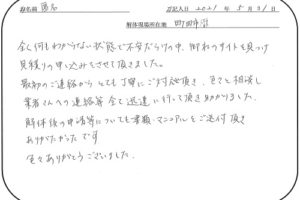 お名前 匿名 ご記入日 2021年 5月31日
解体現場所在地 町田市
全く何もわからない状態で不安だらけの中、御社のサイトを見つけ
見積りの申し込みをさせて頂きました。
最初のご連絡から とても丁寧にご対応頂き、色々と相談し
業者さんへの連絡等 全て迅速に行って頂き助かりました。
解体後の申請等についても書類・マニュアルをご送付頂き
ありがたかったです
色々ありがとうございました。